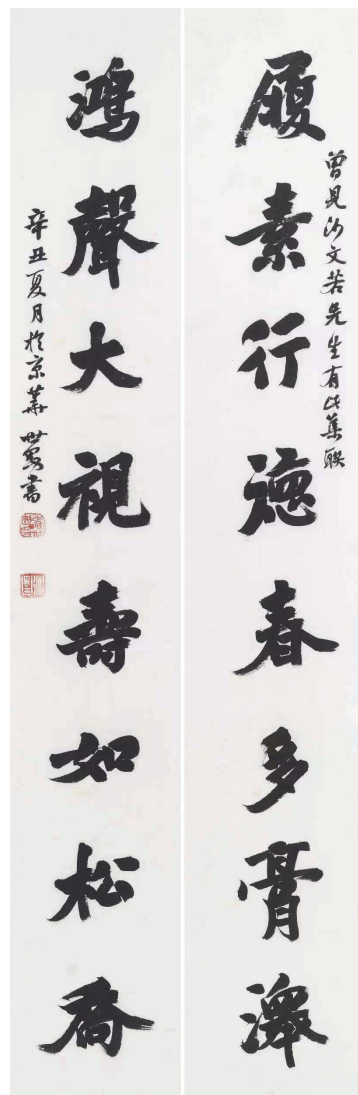 履素行德春多膏澤
曾見沙文若先生有此集聯
鴻聲大視壽如松喬
辛丑夏月於京華世書